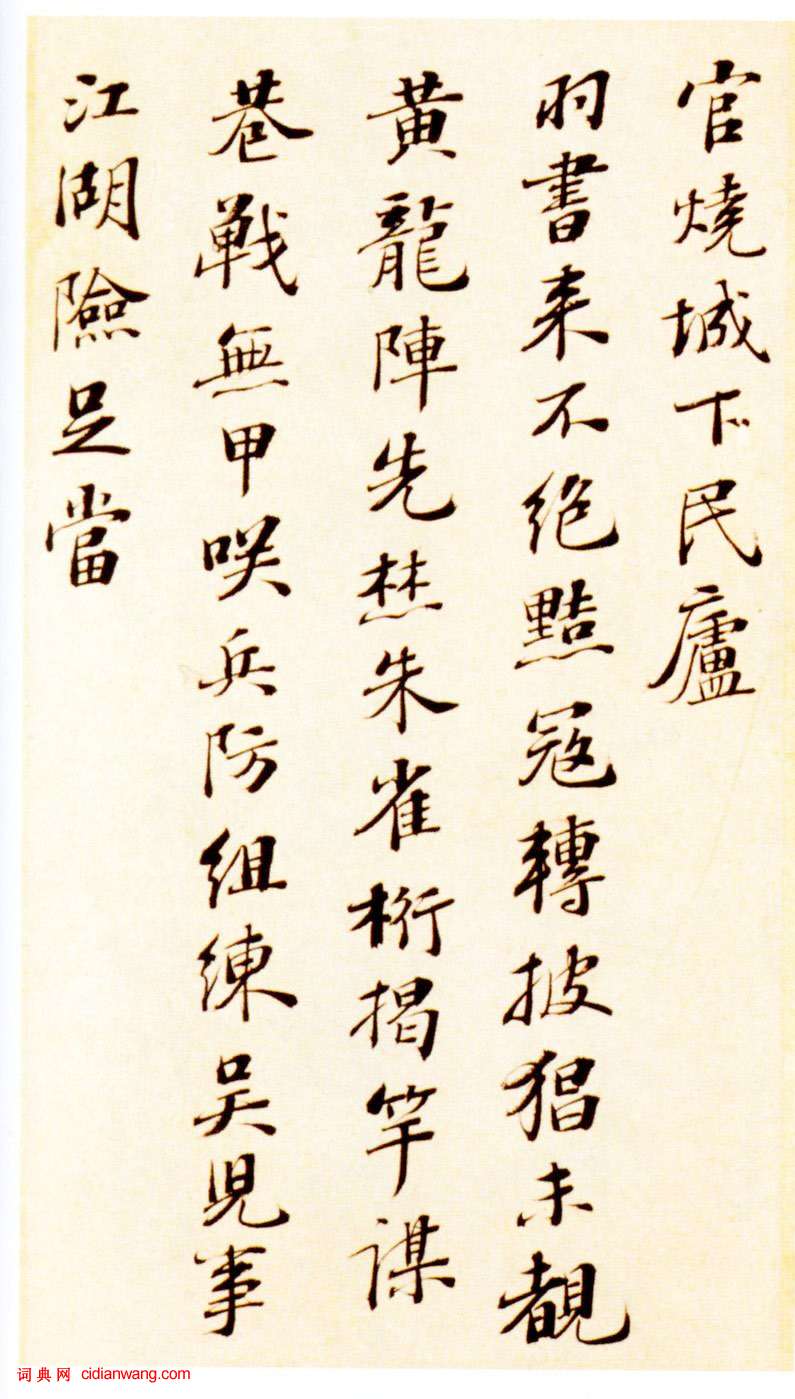 官燒城下民廬
羽書来不絕黠寇轉披猖未覩
黃龍陣先焚朱雀桁揭竿謀
巷戰無甲咲兵防組練吳兒事
江湖險足當
词典网 cidianwang.com